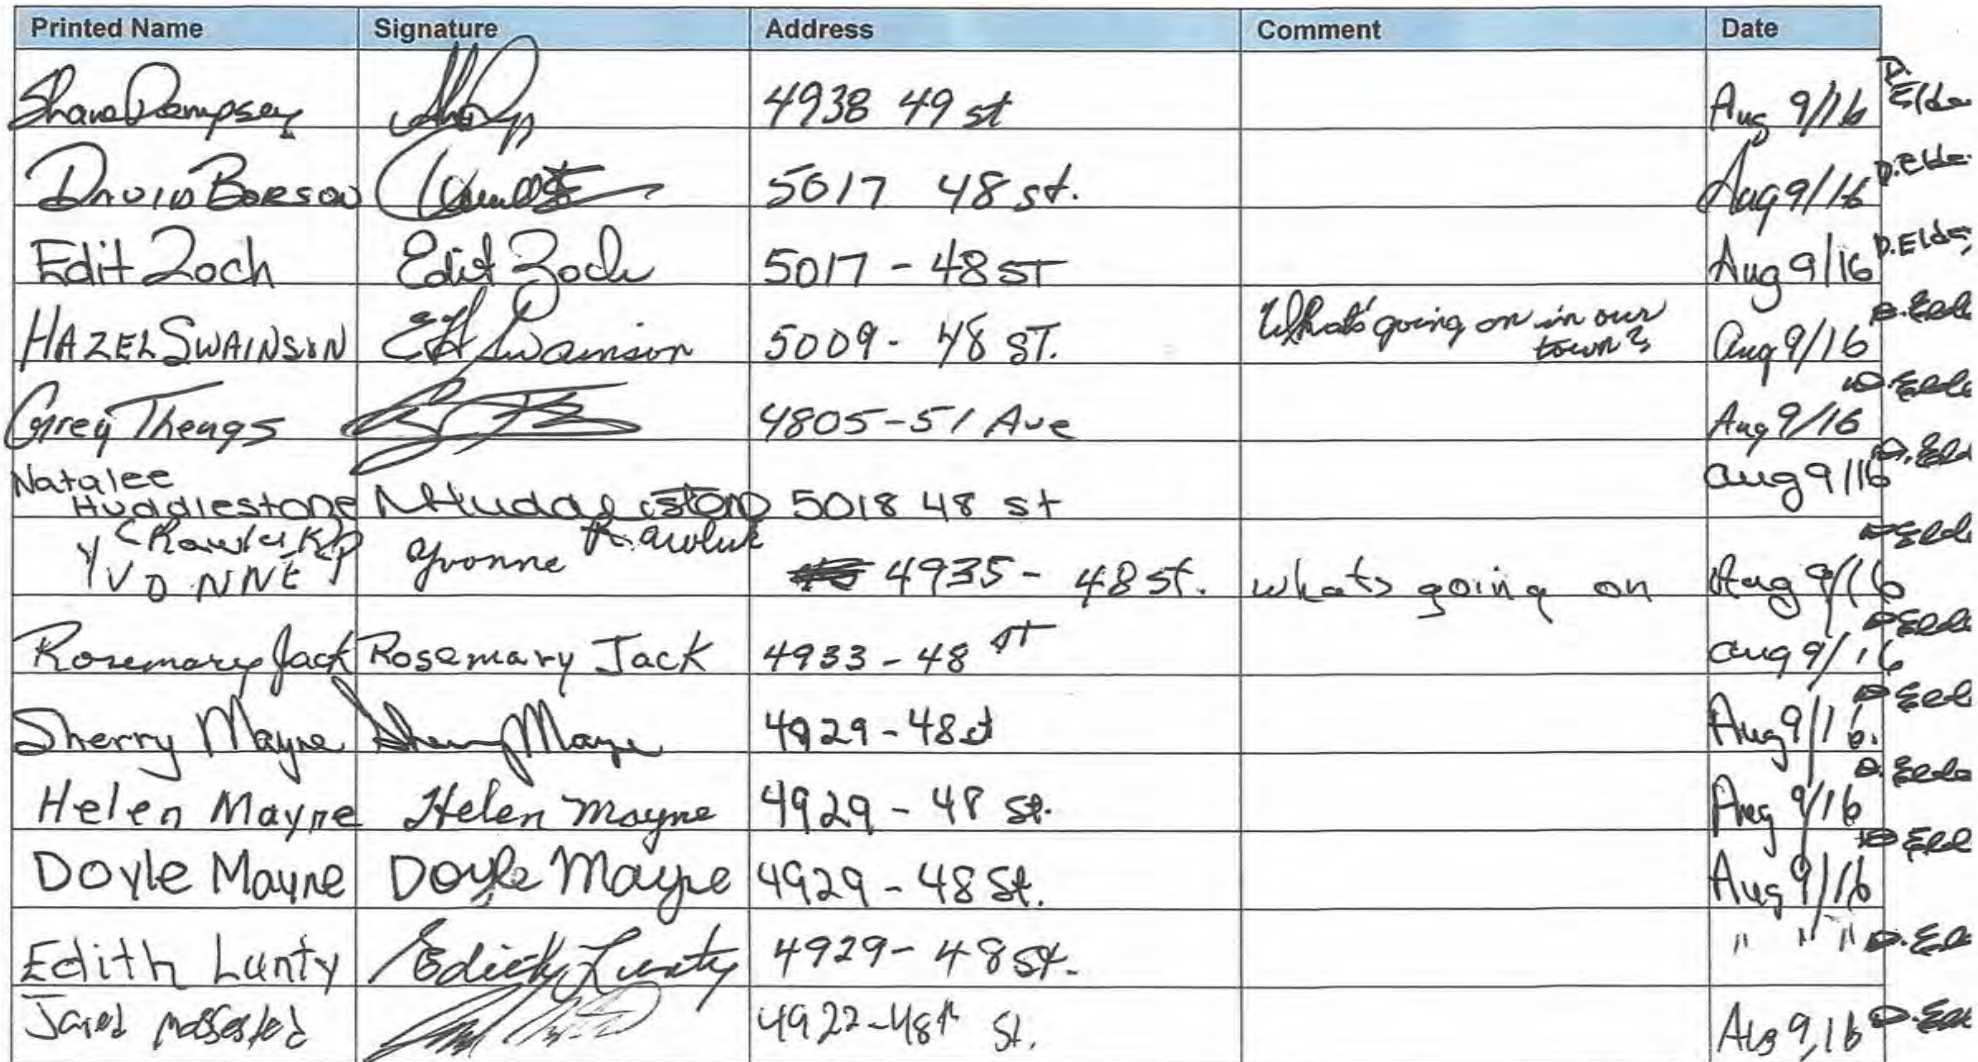 Printed Name Signature Address Comment Date
Shane Dempsey 4938 49 st Aug 9/16 D. Elde
DAVID BORSON 5017 48 st. Aug 9/16 D. Elde
Edit Zoch Edit Zoch 5017 - 48 ST Aug 9/16 D. Elde
HAZEL SWAINSON EH Swainson 5009 - 48 ST. What's going on in our Aug 9/16 D. Elde
town?
Greg Thengs 4805-51 Ave Aug 9/16 D. Elde
Natalee aug 9/16 D. Eld
Huddlestone NHuddlestone 5018 48 st
YVONNE Yvonne 4935 - 48 st. whats going on Aug 9/16 D Eld
Rosemary Jack Rosemary Jack 4933 - 48 ST aug 9/16 D Elde
Sherry Mayne Sherry Mayne 4929 - 48 st Aug 9/16. D Eld
Helen Mayne Helen Mayne 4929 - 48 St. Aug 9/16 D. Elde
Doyle Mayne Doyle Mayne 4929 - 48 St. Aug 9/16 D Eld
Edith Lunty Edith Lunty 4929 - 48 St. " " " D. Eld
Jared 4922-48th St. Aug 9, 16 D. Eld